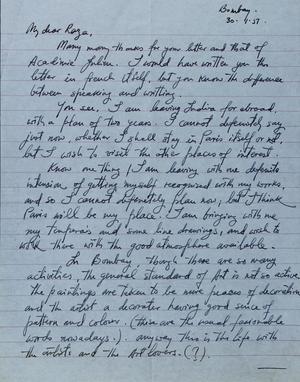 Bombay.
30. 1. 57.
My dear Raza,
Many many thanks for your letter and that of
Academie Julian. I would have written you this
letter in french itself, but you know the difference
between speaking and writing.
You see, I am leaving India for abroad,
with a plan of two years. I cannot definitely say
just now, whether I shall stay in Paris itself or not,
but I wish to visit the other places of interest.
Know one thing, I am leaving with one definite
intension of getting myself recognised with my works,
and so I cannot definitely plan now, but I think
Paris will be my place. I am bringing with me
my temperas and some line drawings, and wish to
work there with the good atmosphere available.
In Bombay, though there are so many
activities, the general standard of Art is not so active
the paintings are taken to be mere pieces of decoration
and the artist a decorator having good sense of
pattern and colour. (these are the usual fashionable
words nowadays.). anyway this is the life with
the artists and the Art lovers. (?).